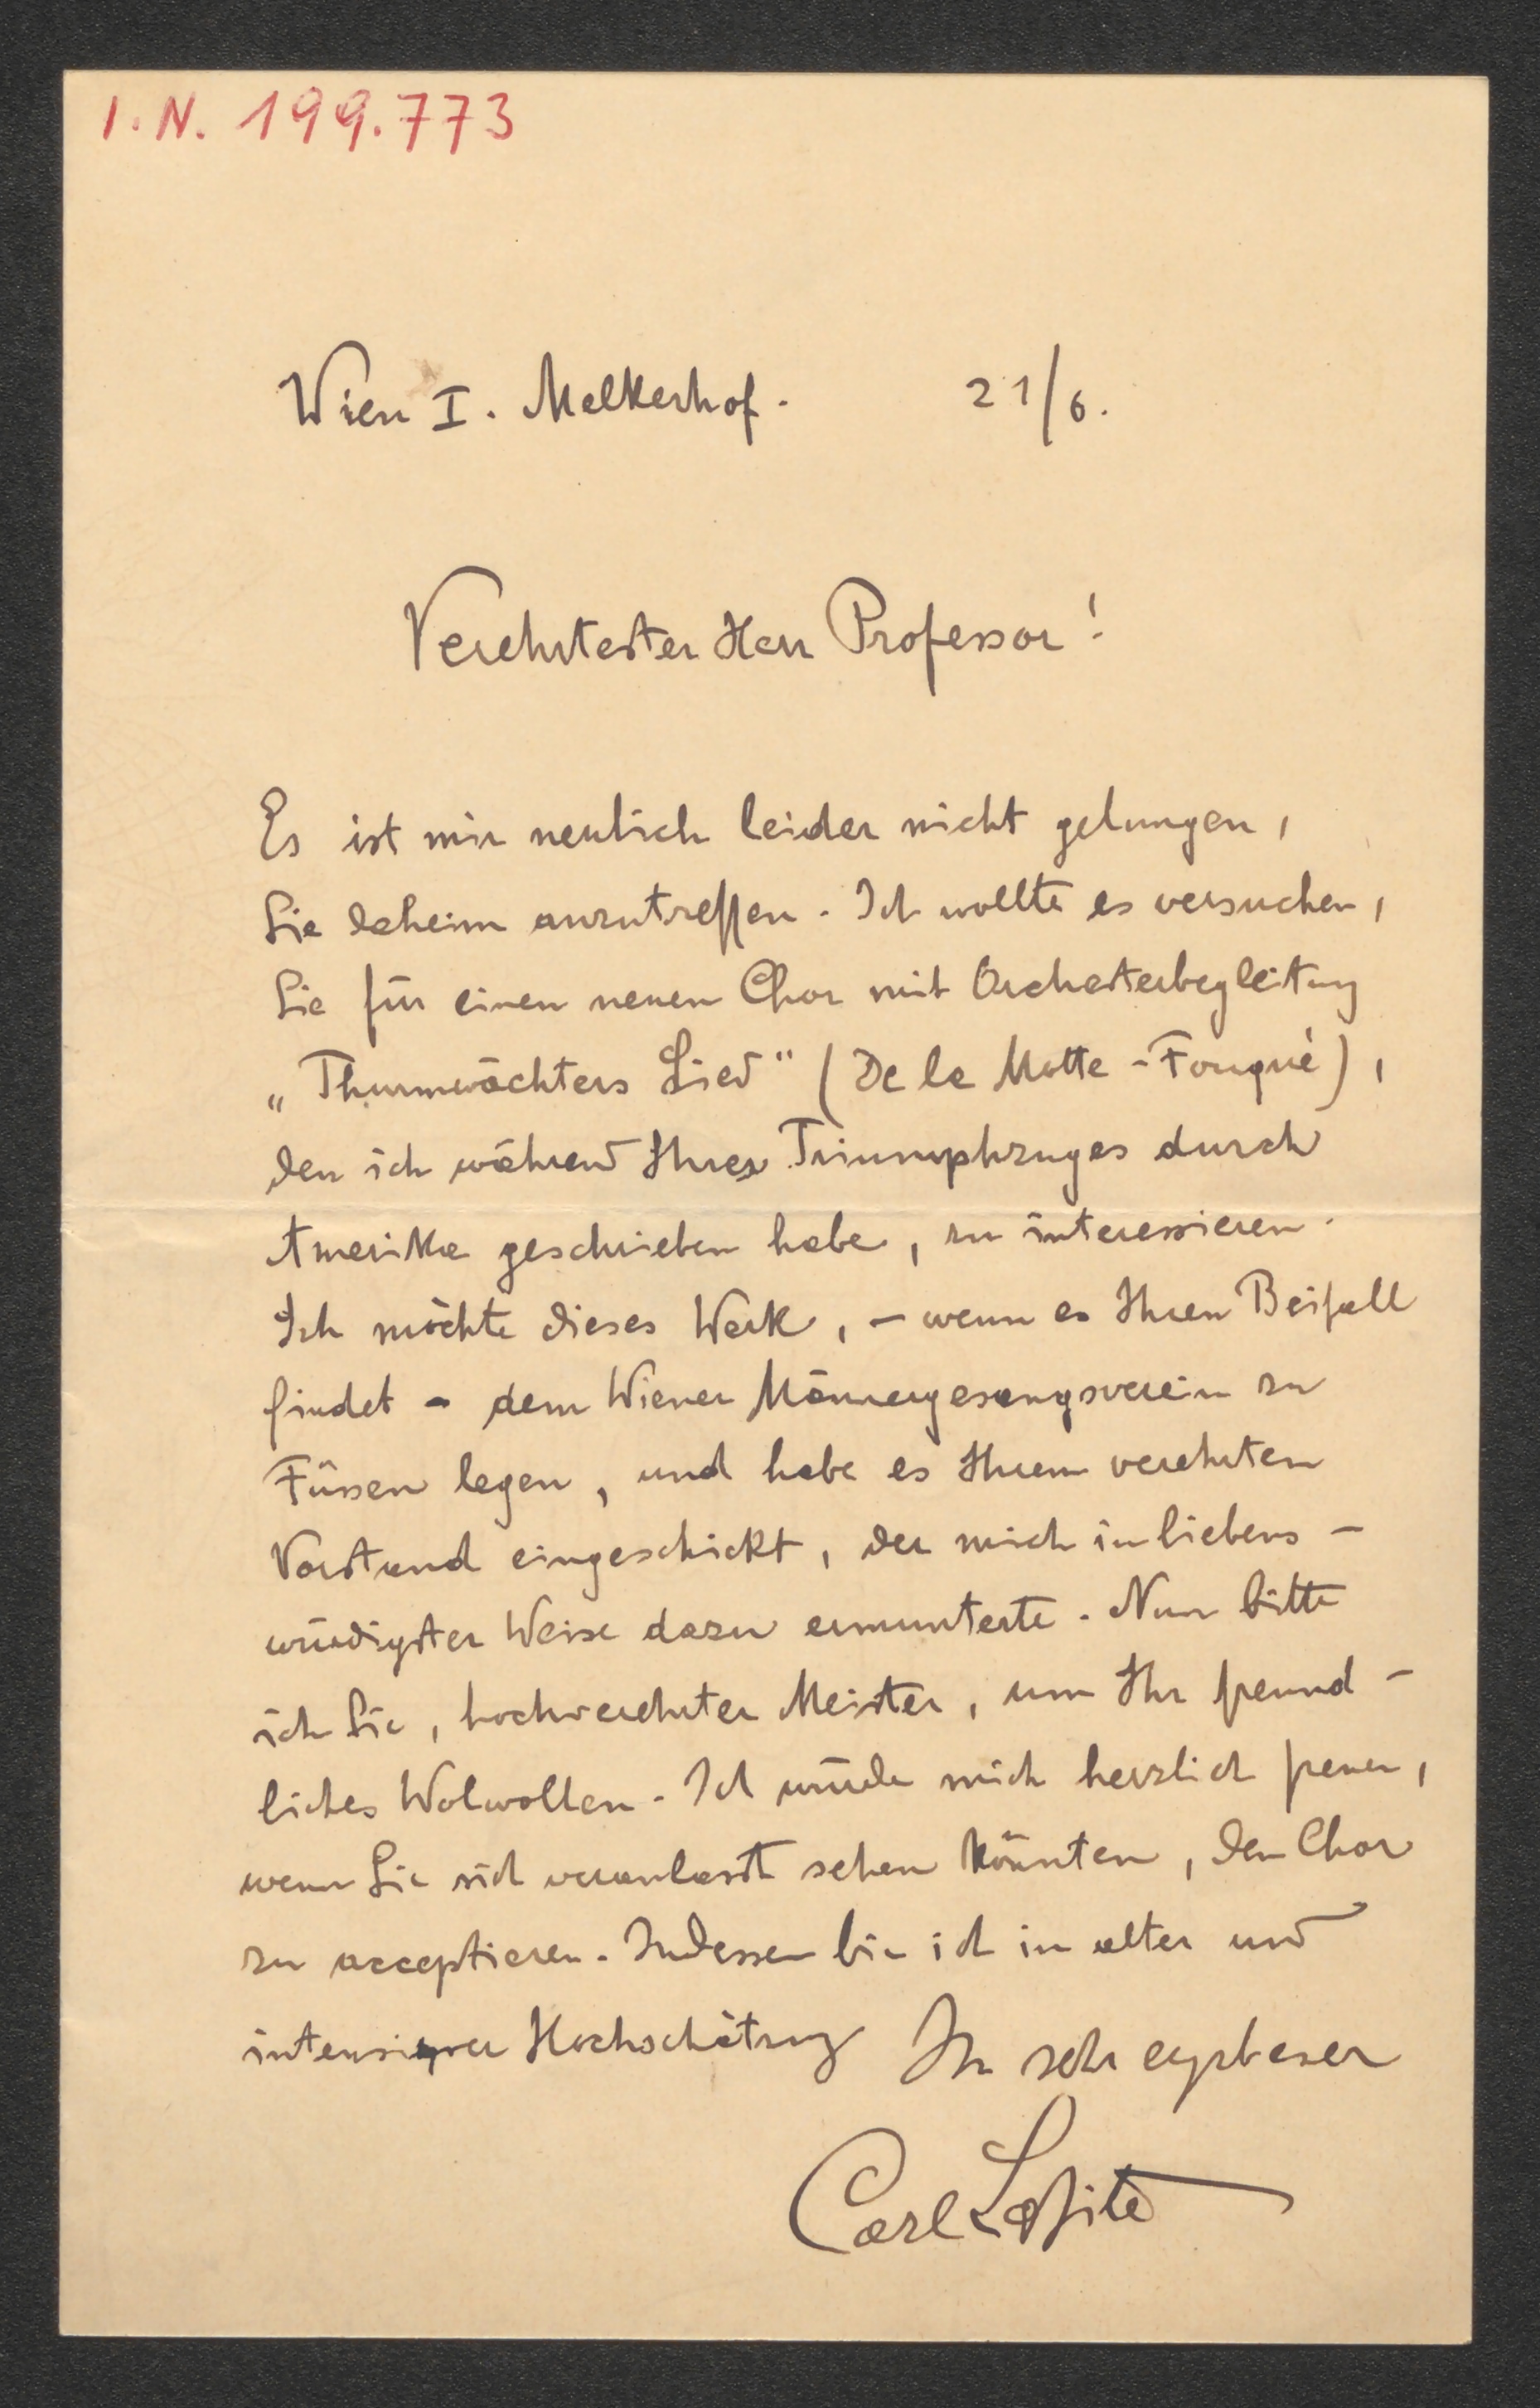 I.N. 199.773
Wien I. Melkerhof. 21/6.
Verehrtester Herr Professor!
Es ist mir neulich leider nicht gelungen,
Sie daheim anzutreffen. Ich wollte es versuchen,
Sie für einen neuen Chor mit Orchesterbegleitung
„Thurmwächters Lied" (De la Motte-Fouqué),
den ich während Ihres Triumphzuges durch
Amerika geschrieben habe, zu interessieren.
Ich möchte dieses Werk, - wenn es Ihren Beifall
findet - dem Wiener Männergesangsverein zu
Füssen legen, und habe es Ihrem verehrten
Vorstand eingeschickt, der mich in liebens-
würdigster Weise dazu ermunterte. Nun bitte
ich Sie, hochverehrter Meister, um Ihr freund-
liches Wolwollen. Ich würde mich herzlich freuen,
wenn Sie sich veranlasst sehen könnten, den Chor
zu acceptieren. Indessen bin ich in alter und
intensiver Hochschätzung Ihr sehr ergebener
Carl Lafite